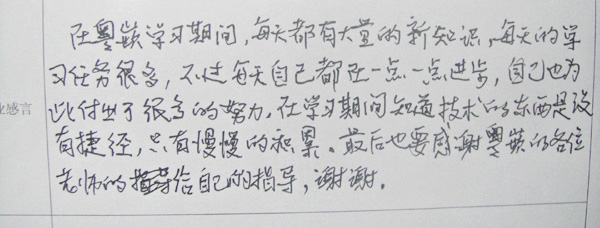 在粤嵌学习期间,每天都有大量的新知识,每天的学
习任务很多,不过每天自己都在一点一点进步,自己也为
业感言
此付出了很多的努力,在学习期间知道技术的东西是没
有捷径,只有慢慢的积累。最后也要感谢粤嵌的各位
老师的给自己的指导,谢谢。